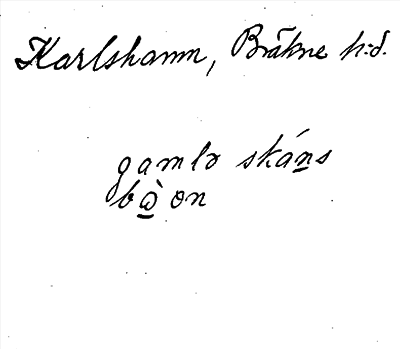 Karlshamn, Bräkne h:d.
gamlə skáns
bɷ̀ ən